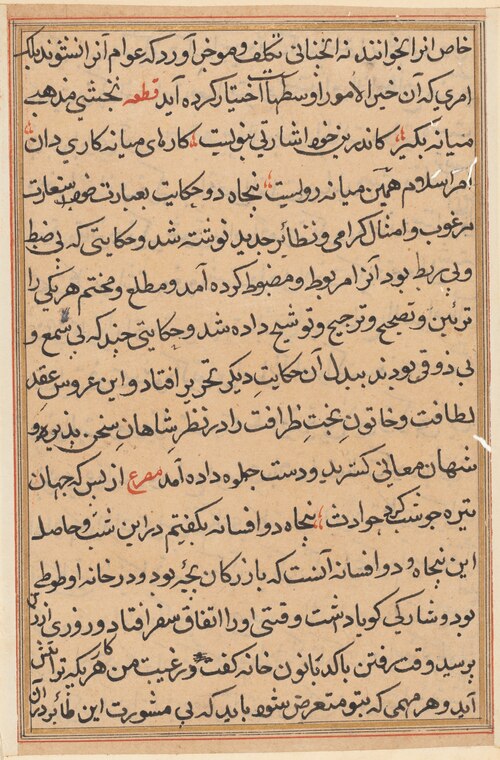 خاص انرا نخوانند نه انچنانی تکلف و موخر آورد که عوام آنرا نشنوند بلکه
امری که آن خیر الامور اوسطها اختیار کرده آید قطعه نخشبی مذهبے
میانه بگیر کاندرین خود اشارتی نبویست کارهای میانه کاری دان
امر اسلام همین میانه رویست پنجاه دو حکایت بعبارت خوب و استعارت
مرغوب و امثال گرامی و نظایر جدید نوشته شد و حکایتی که بی ضبط
و بی ربط بود آنرا مربوط و مضبوط کرده آمد و مطلع و مختم هر یکی را
تزئین و تصحیح و ترجیح و توشیح داده شد و حکایتی چند که بی سمع و
بی ذوق بودند ببدل آن حکایت دیگر تحریر افتاد و این عروس عقد
لطافت و خاتون تخت ظرافت را در نظر شاهان سخن پذیر و
شهان معانی کستر ید و دست جلوه داده آمد مصرع از بس که جهان
تیره چو شب کرد حوادث پنجاه دو افسانه بگفتیم در این شب و حاصل
این پنجاه و دو افسانه آنست که بازرگان بچه بود و در خانه او طوطی
بود و شارکی گویا داشت وقتی او را اتفاق سفر افتاد و روزی از
بوسید وقت رفتن با کدبانون خانه گفت در غیبت من هر یکه توا پیش
آید و هر مهمی که بتو متعرض شود باید که بی مشورت این طائر در آن